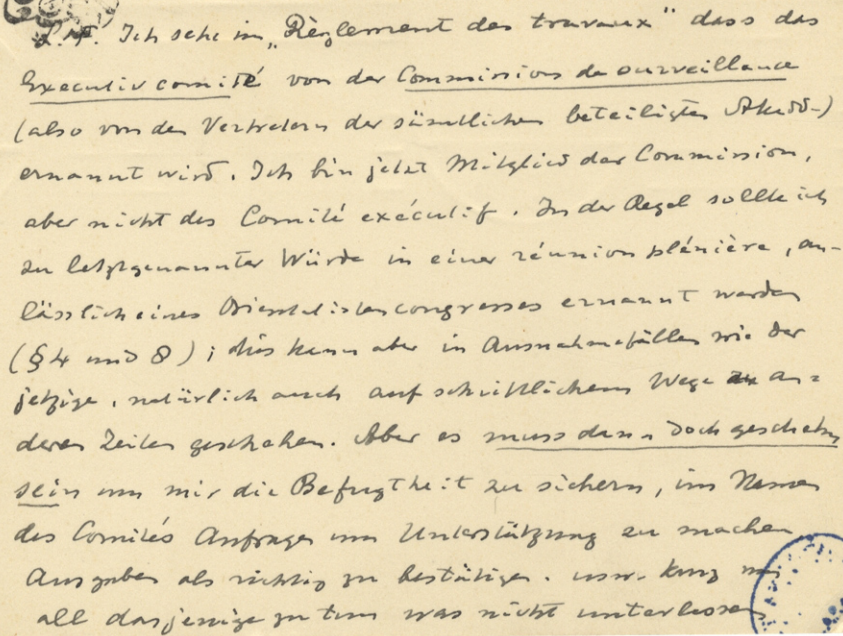 L. F. Ich sehe im „Règlement des travaux" dass das
Executivcomité von der Commission de surveillance
(also von den Vertretern der sämtlichen beteiligten Akadd-)
ernannt wird. Ich bin jetzt Mitglied der Commission,
aber nicht des Comité exécutif. In der Regel sollte ich
zu letztgenannter Würde in einer réunion plénière, an-
lässlich eines Orientalistencongresses ernannt werden
(§ 4 und 8); dies kann aber in Ausnahmefällen wie der
jetzige, natürlich auch auf schriftlichem Wege zu an=
deren Zeiten geschehen. Aber es muss dann doch geschehen
sein um mir die Befugtheit zu sichern, im Namen
des Comités Anfragen um Unterstützung zu machen
Ausgaben als richtig zu bestätigen. usw. kurz um
all dasjenige zu tun was nicht unterlassen